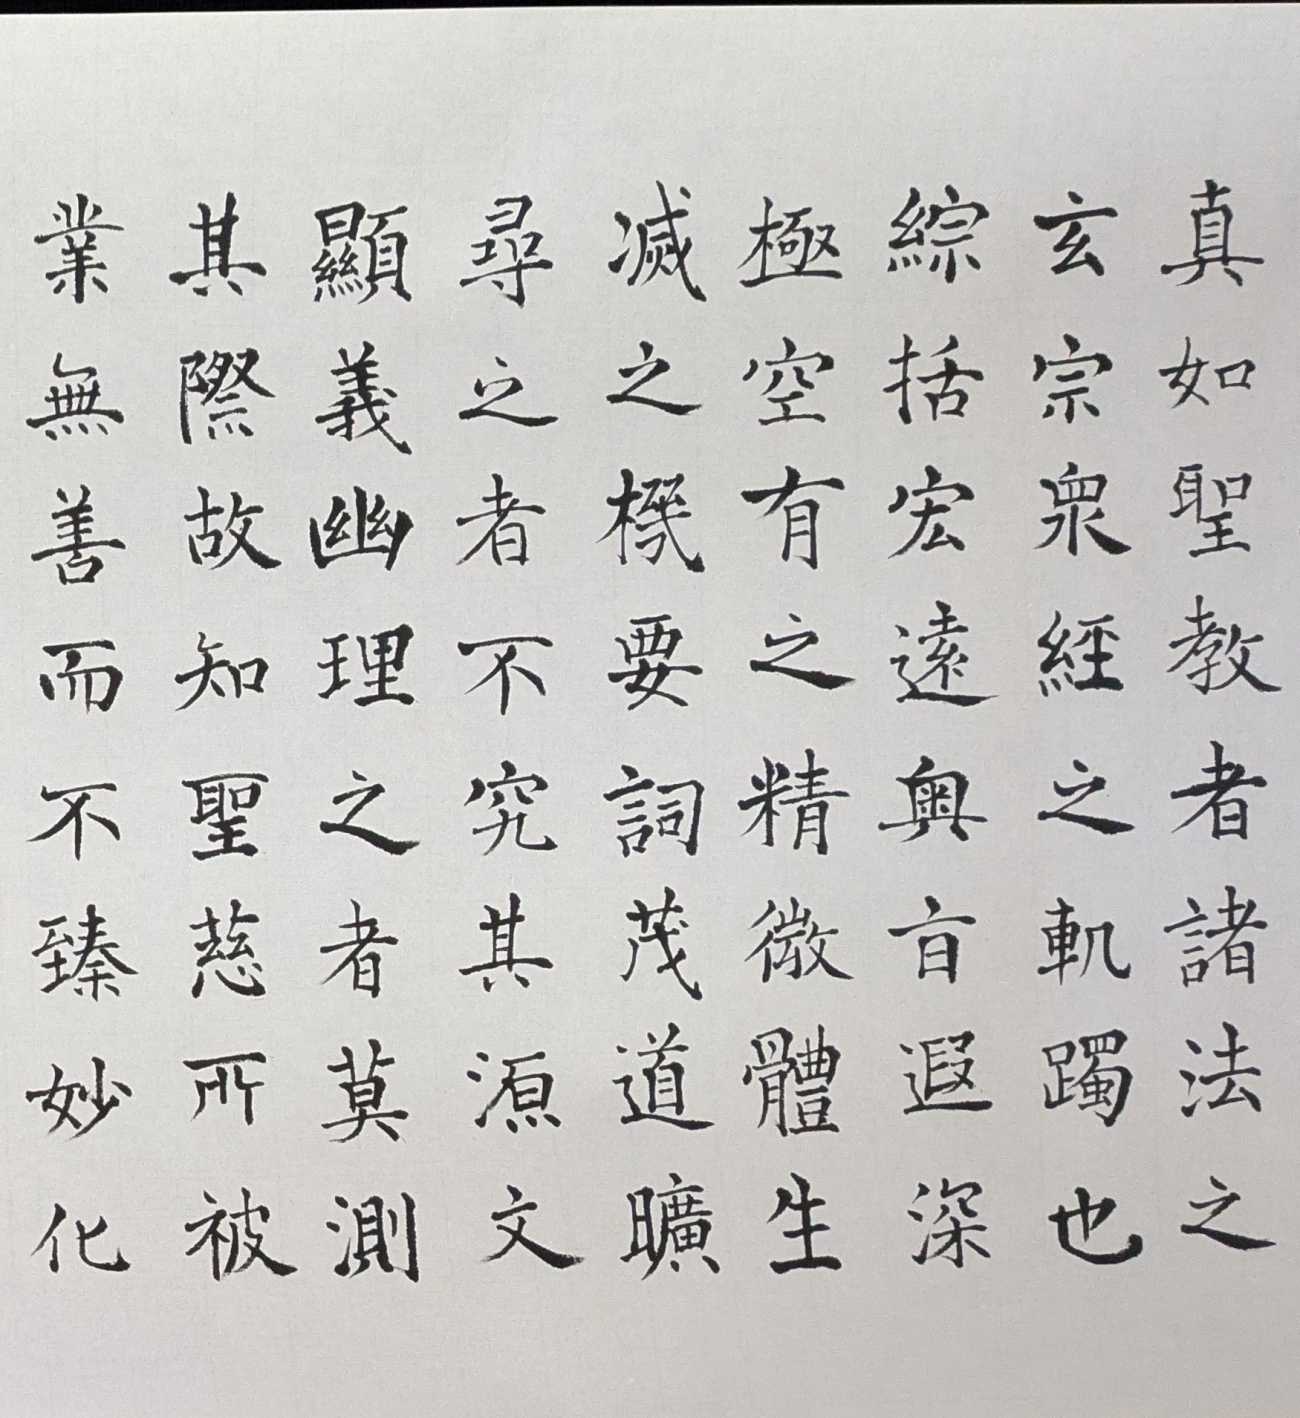 真如聖教者諸法之
玄宗眾經之軌躅也
綜括宏遠奧旨遐深
極空有之精微體生
滅之機要詞茂道曠
尋之者不究其源文
顯義幽理之者莫測
其際故知聖慈所被
業無善而不臻妙化